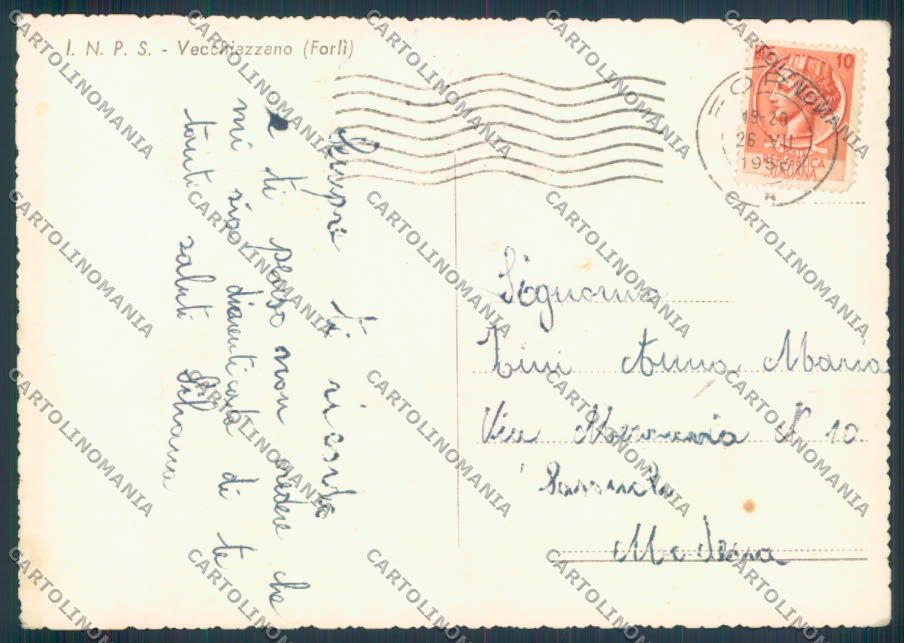 I. N. P. S. - Vecchiazzano (Forlì)
Sempre ti ricordo
e ti penso non credere che
mi sia dimenticata di te
tanti saluti Silvana
FORLI
19-20
26 VII
195
10
REPUBBLICA
ITALIANA
Signorina
Tini Anna Maria
Via N 10
Sassuolo
Modena
CARTOLINOMANIA